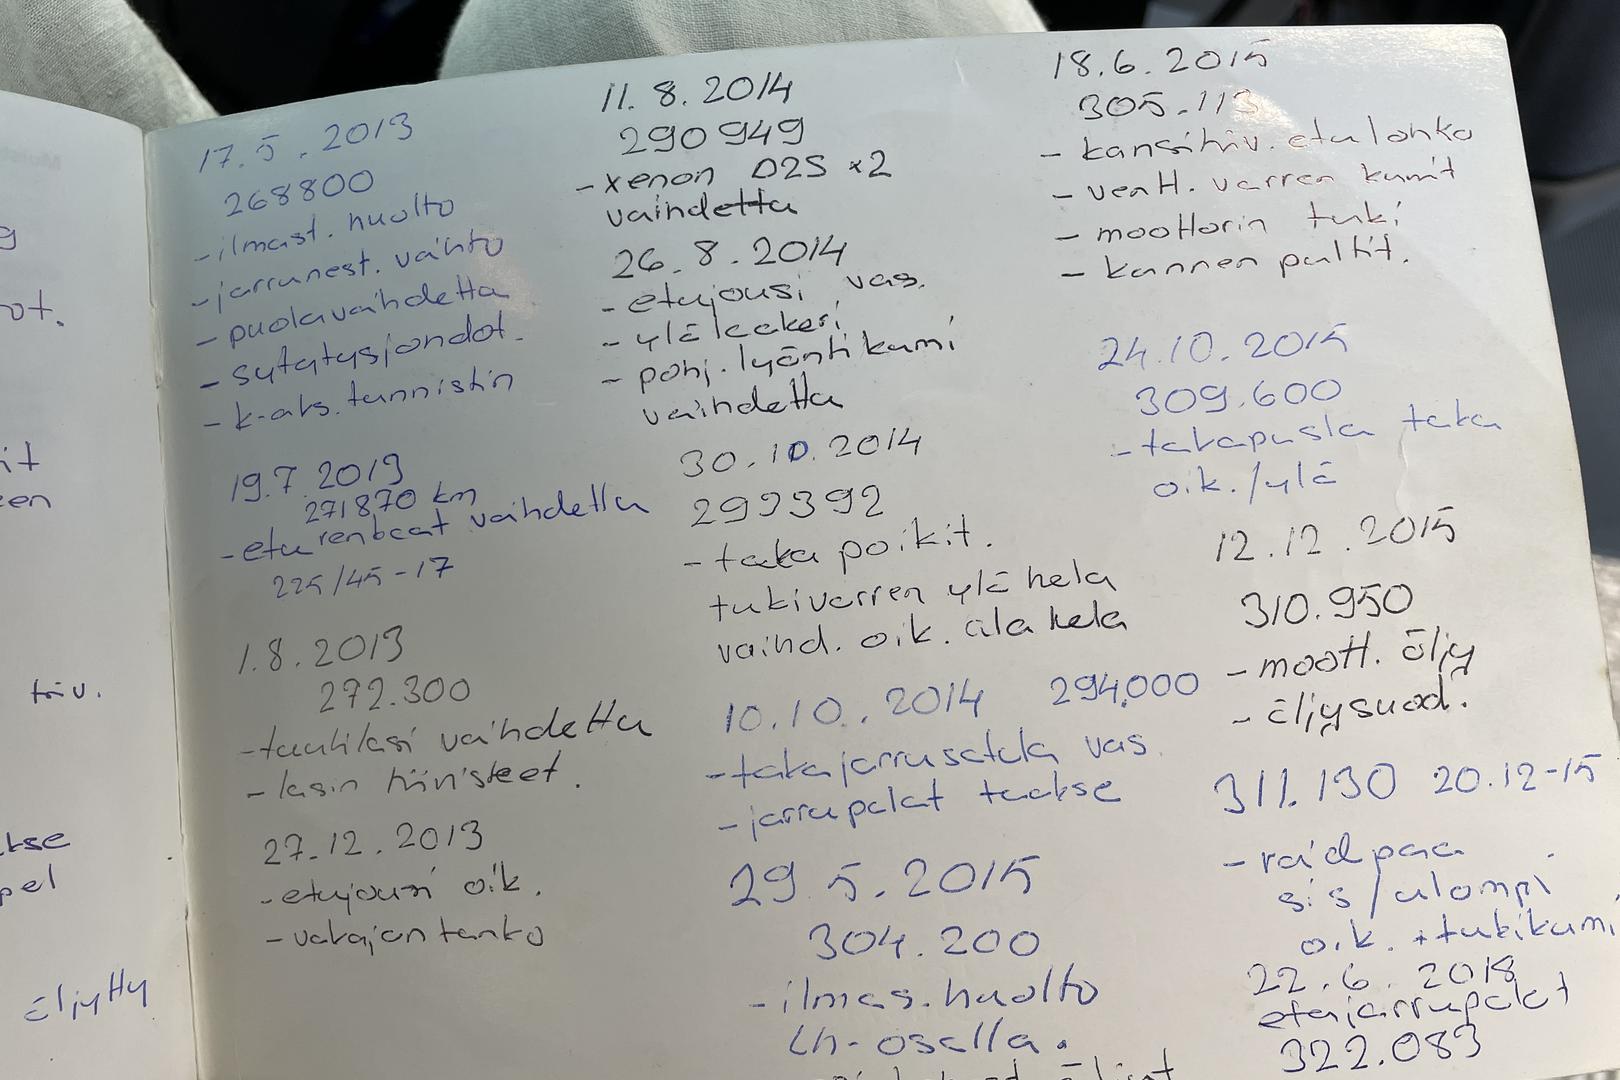 17.5.2013
268800
- ilmast. huolto
- jarrunest. vaihto
- puola vaihdettu
- sytytysjohdot.
- k-aks. tunnistin
19.7.2013
271870 km
- etu renkaat vaihdettu
225/45-17
1.8.2013
272.300
- tuulilasi vaihdettu
- lasin tiivisteet.
27.12.2013
- etujousi oik.
- vakajan tanko
11.8.2014
290949
- xenon D2S x2
vaihdettu
26.8.2014
- etujousi vas.
- ylälaakeri
- pohj. lyöntikumi
vaihdettu
30.10.2014
299392
- taka poikit.
tukivarren ylä hela
vaihd. oik. ala hela
10.10.2014 294.000
- taka jarrusatula vas.
- jarrupalat taakse
29.5.2015
304.200
- ilmas. huolto
LH-osalla.
18.6.2015
305.113
- kansitiiv. etulohko
- ventt. varren kumit
- moottorin tuki
- kannen pultit.
24.10.2015
309.600
- takapusla taka
oik./ylä
12.12.2015
310.950
- moott. öljy
- öljysuod.
311.130 20.12-15
- raid.pää
sis/ulompi
oik. + tukikumi
22.6.2018
etujarrupalat
322.083
g
ot.
it
en
tiiv.
kse
pel
öljytty